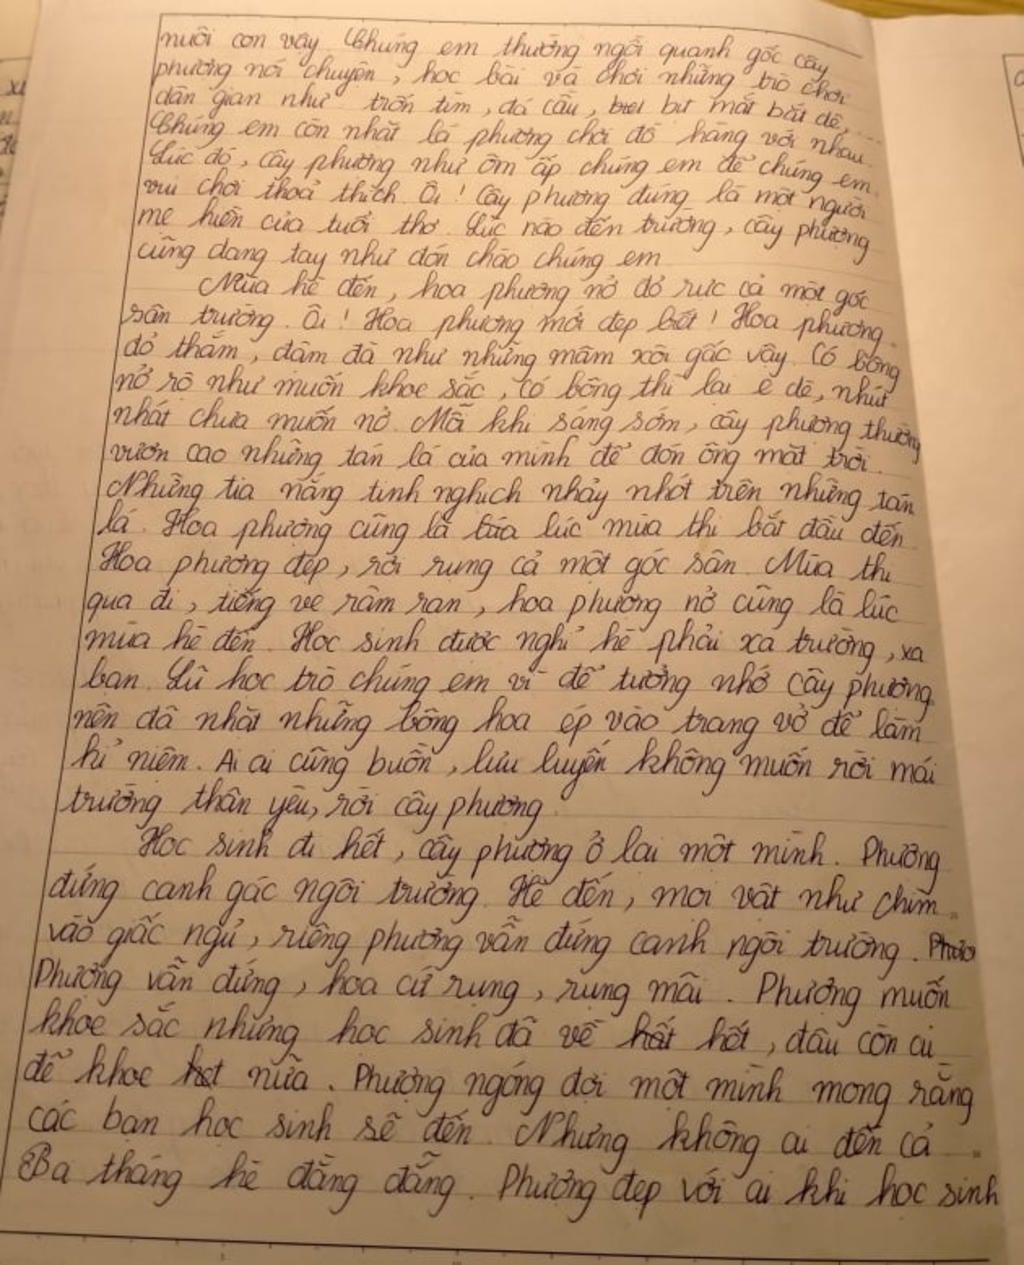 nuôi con vậy. Chúng em thường ngồi quanh gốc cây
phượng nói chuyện, học bài và chơi những trò chơi
dân gian như trốn tìm, đá cầu, bịt mắt bắt dê,...
Chúng em còn nhặt lá phượng chơi đồ hàng với nhau.
Lúc đó, cây phượng như ôm ấp chúng em để chúng em
vui chơi thoả thích. Ôi! Cây phượng đúng là một người
mẹ hiền của tuổi thơ. Lúc nào đến trường, cây phượng
cũng dang tay như đón chào chúng em
Mùa hè đến, hoa phượng nở đỏ rực cả một góc
sân trường. Ôi! Hoa phượng mới đẹp biết! Hoa phượng
đỏ thắm, đậm đà như những mâm xôi gấc vậy. Có bông
nở rõ như muốn khoe sắc, có bông thì lại e dè, nhút
nhát chưa muốn nở. Mỗi khi sáng sớm, cây phượng thường
vươn cao những tán lá của mình để đón ông mặt trời.
Những tia nắng tinh nghịch nhảy nhót trên những tán
lá. Hoa phượng cũng là lúc mùa thi bắt đầu đến.
Hoa phượng đẹp, rơi rụng cả một góc sân. Mùa thi
qua đi, tiếng ve râm ran, hoa phượng nở cũng là lúc
mùa hè đến. Học sinh được nghỉ hè phải xa trường, xa
bạn. Lũ học trò chúng em vì để tưởng nhớ cây phượng
nên đã nhặt những bông hoa ép vào trang vở để làm
kỉ niệm. Ai ai cũng buồn, lưu luyến không muốn rời mái
trường thân yêu, rời cây phượng.
Học sinh đi hết, cây phượng ở lại một mình. Phượng
đứng canh gác ngôi trường. Hè đến, mọi vật như chìm
vào giấc ngủ, riêng phượng vẫn đứng canh ngôi trường.
Phượng vẫn đứng, hoa cứ rụng, rụng mãi. Phượng muốn
khoe sắc nhưng học sinh đã về hết, đâu còn ai
để khoe nữa. Phượng ngóng đợi một mình mong rằng
các bạn học sinh sẽ đến. Nhưng không ai đến cả.
Ba tháng hè đằng đẵng. Phượng đẹp với ai khi học sinh